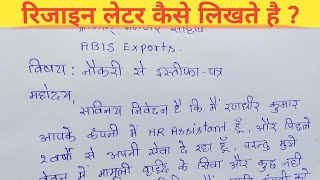 रिजाइन लेटर कैसे लिखते है ?
ABIS Exports.
विषय : नौकरी से इस्तीफा-पत्र
महोदय,
सविनय निवेदन है कि मैं रणधीर कुमार
आपके कंपनी में HR Assistant हूँ, और पिछले
2 वर्षों से अपनी सेवा दे रहा हूँ, परन्तु मुझे
वेतन में मामूली वृद्धि के सिवा और कुछ नहीं